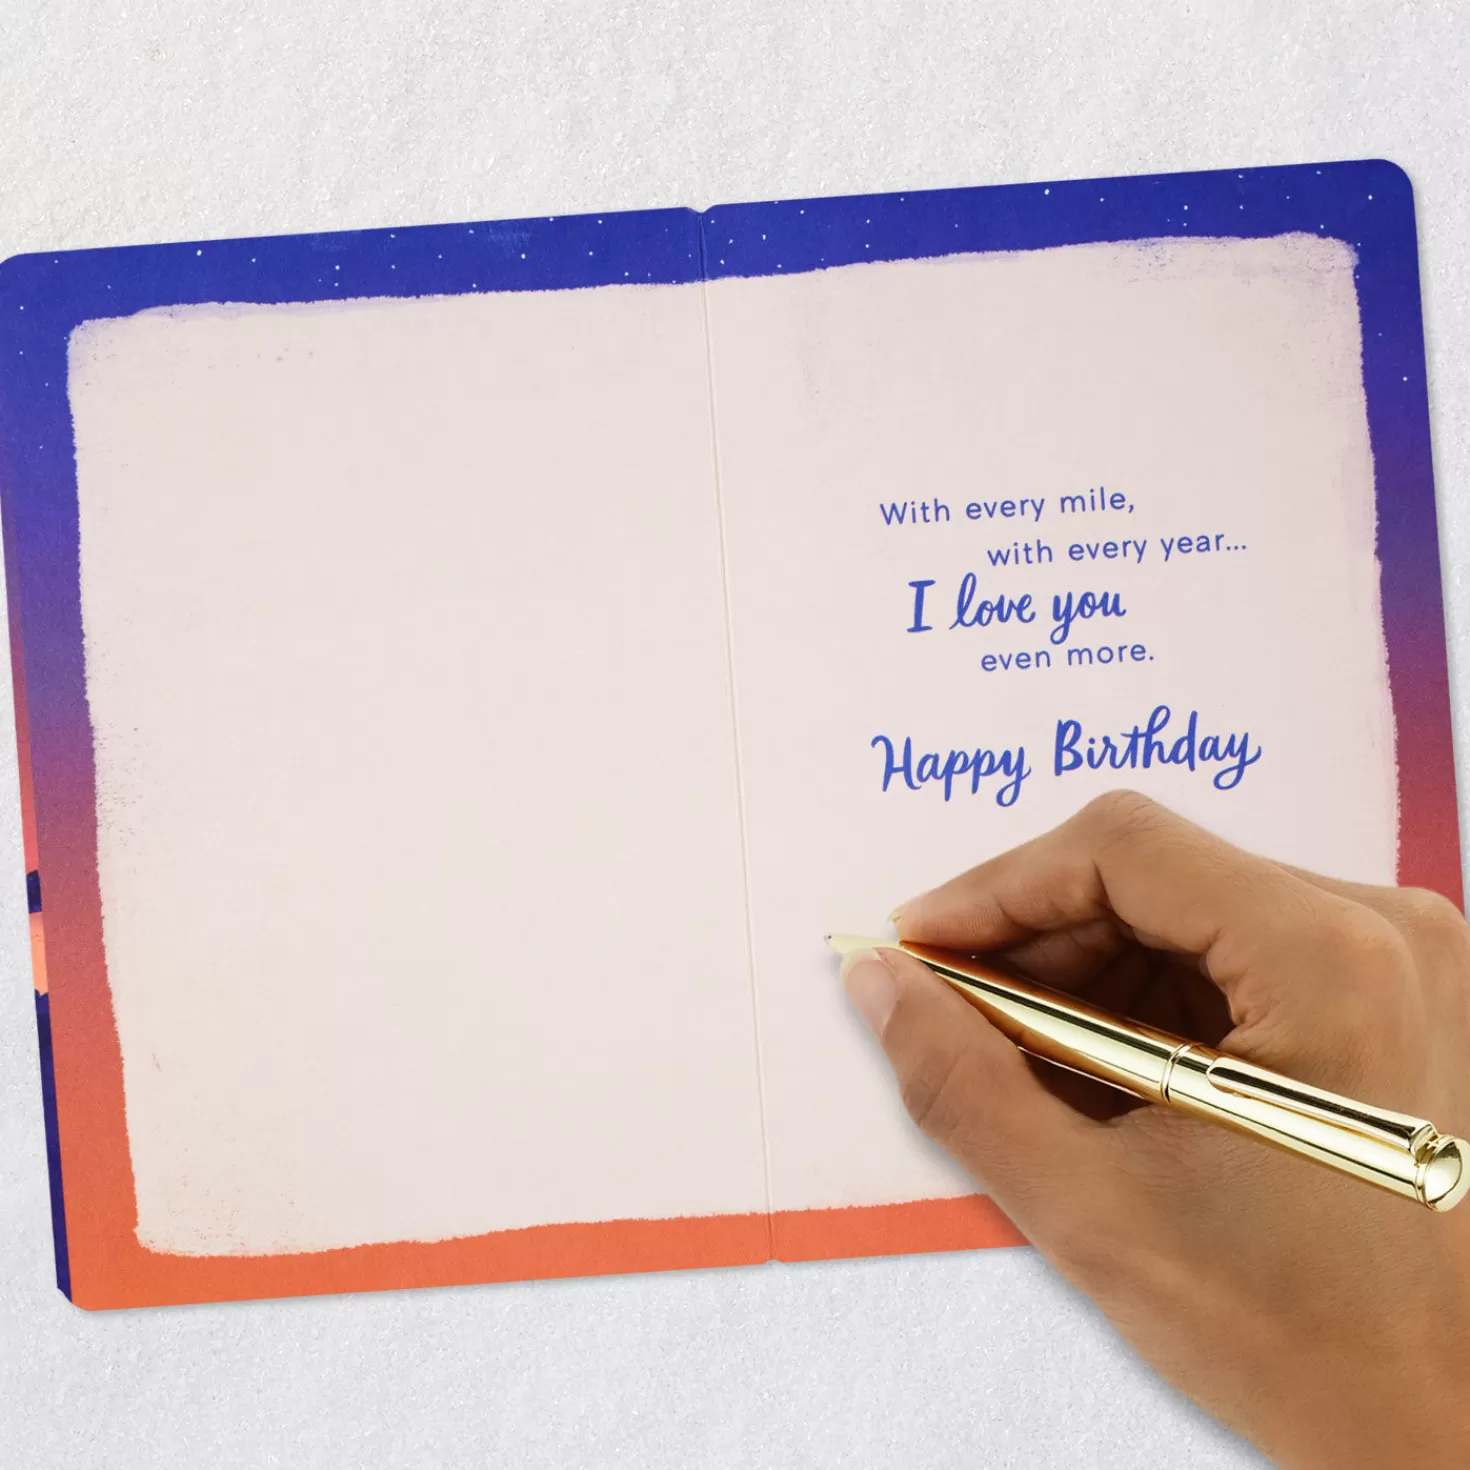 With every mile,
with every year...
I love you
even more.
Happy Birthday